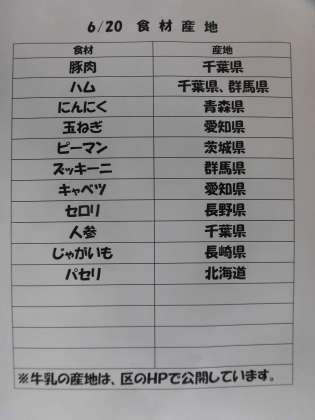 6/20 食材産地
食材 産地
豚肉 千葉県
ハム 千葉県、群馬県
にんにく 青森県
玉ねぎ 愛知県
ピーマン 茨城県
ズッキーニ 群馬県
キャベツ 愛知県
セロリ 長野県
人参 千葉県
じゃがいも 長崎県
パセリ 北海道
※牛乳の産地は、区のHPで公開しています。